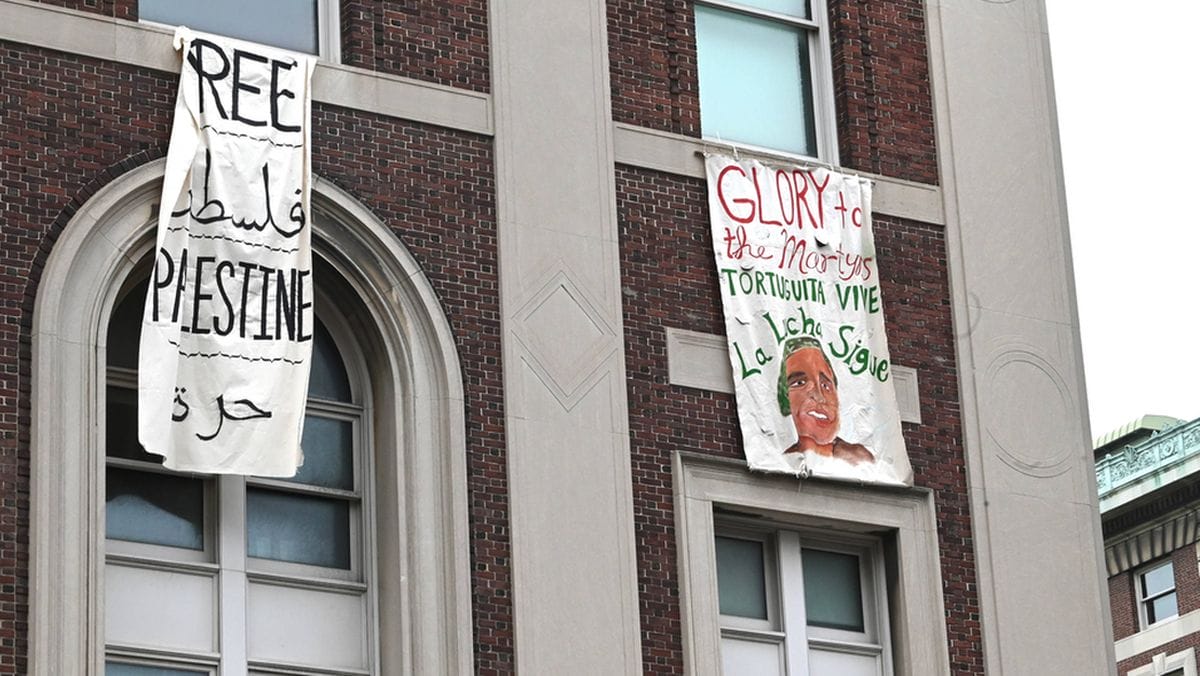 REE
فلسطين
PALESTINE
حرة
GLORY to
the Martyrs
TORTUGUITA VIVE
La Lucha Sigue